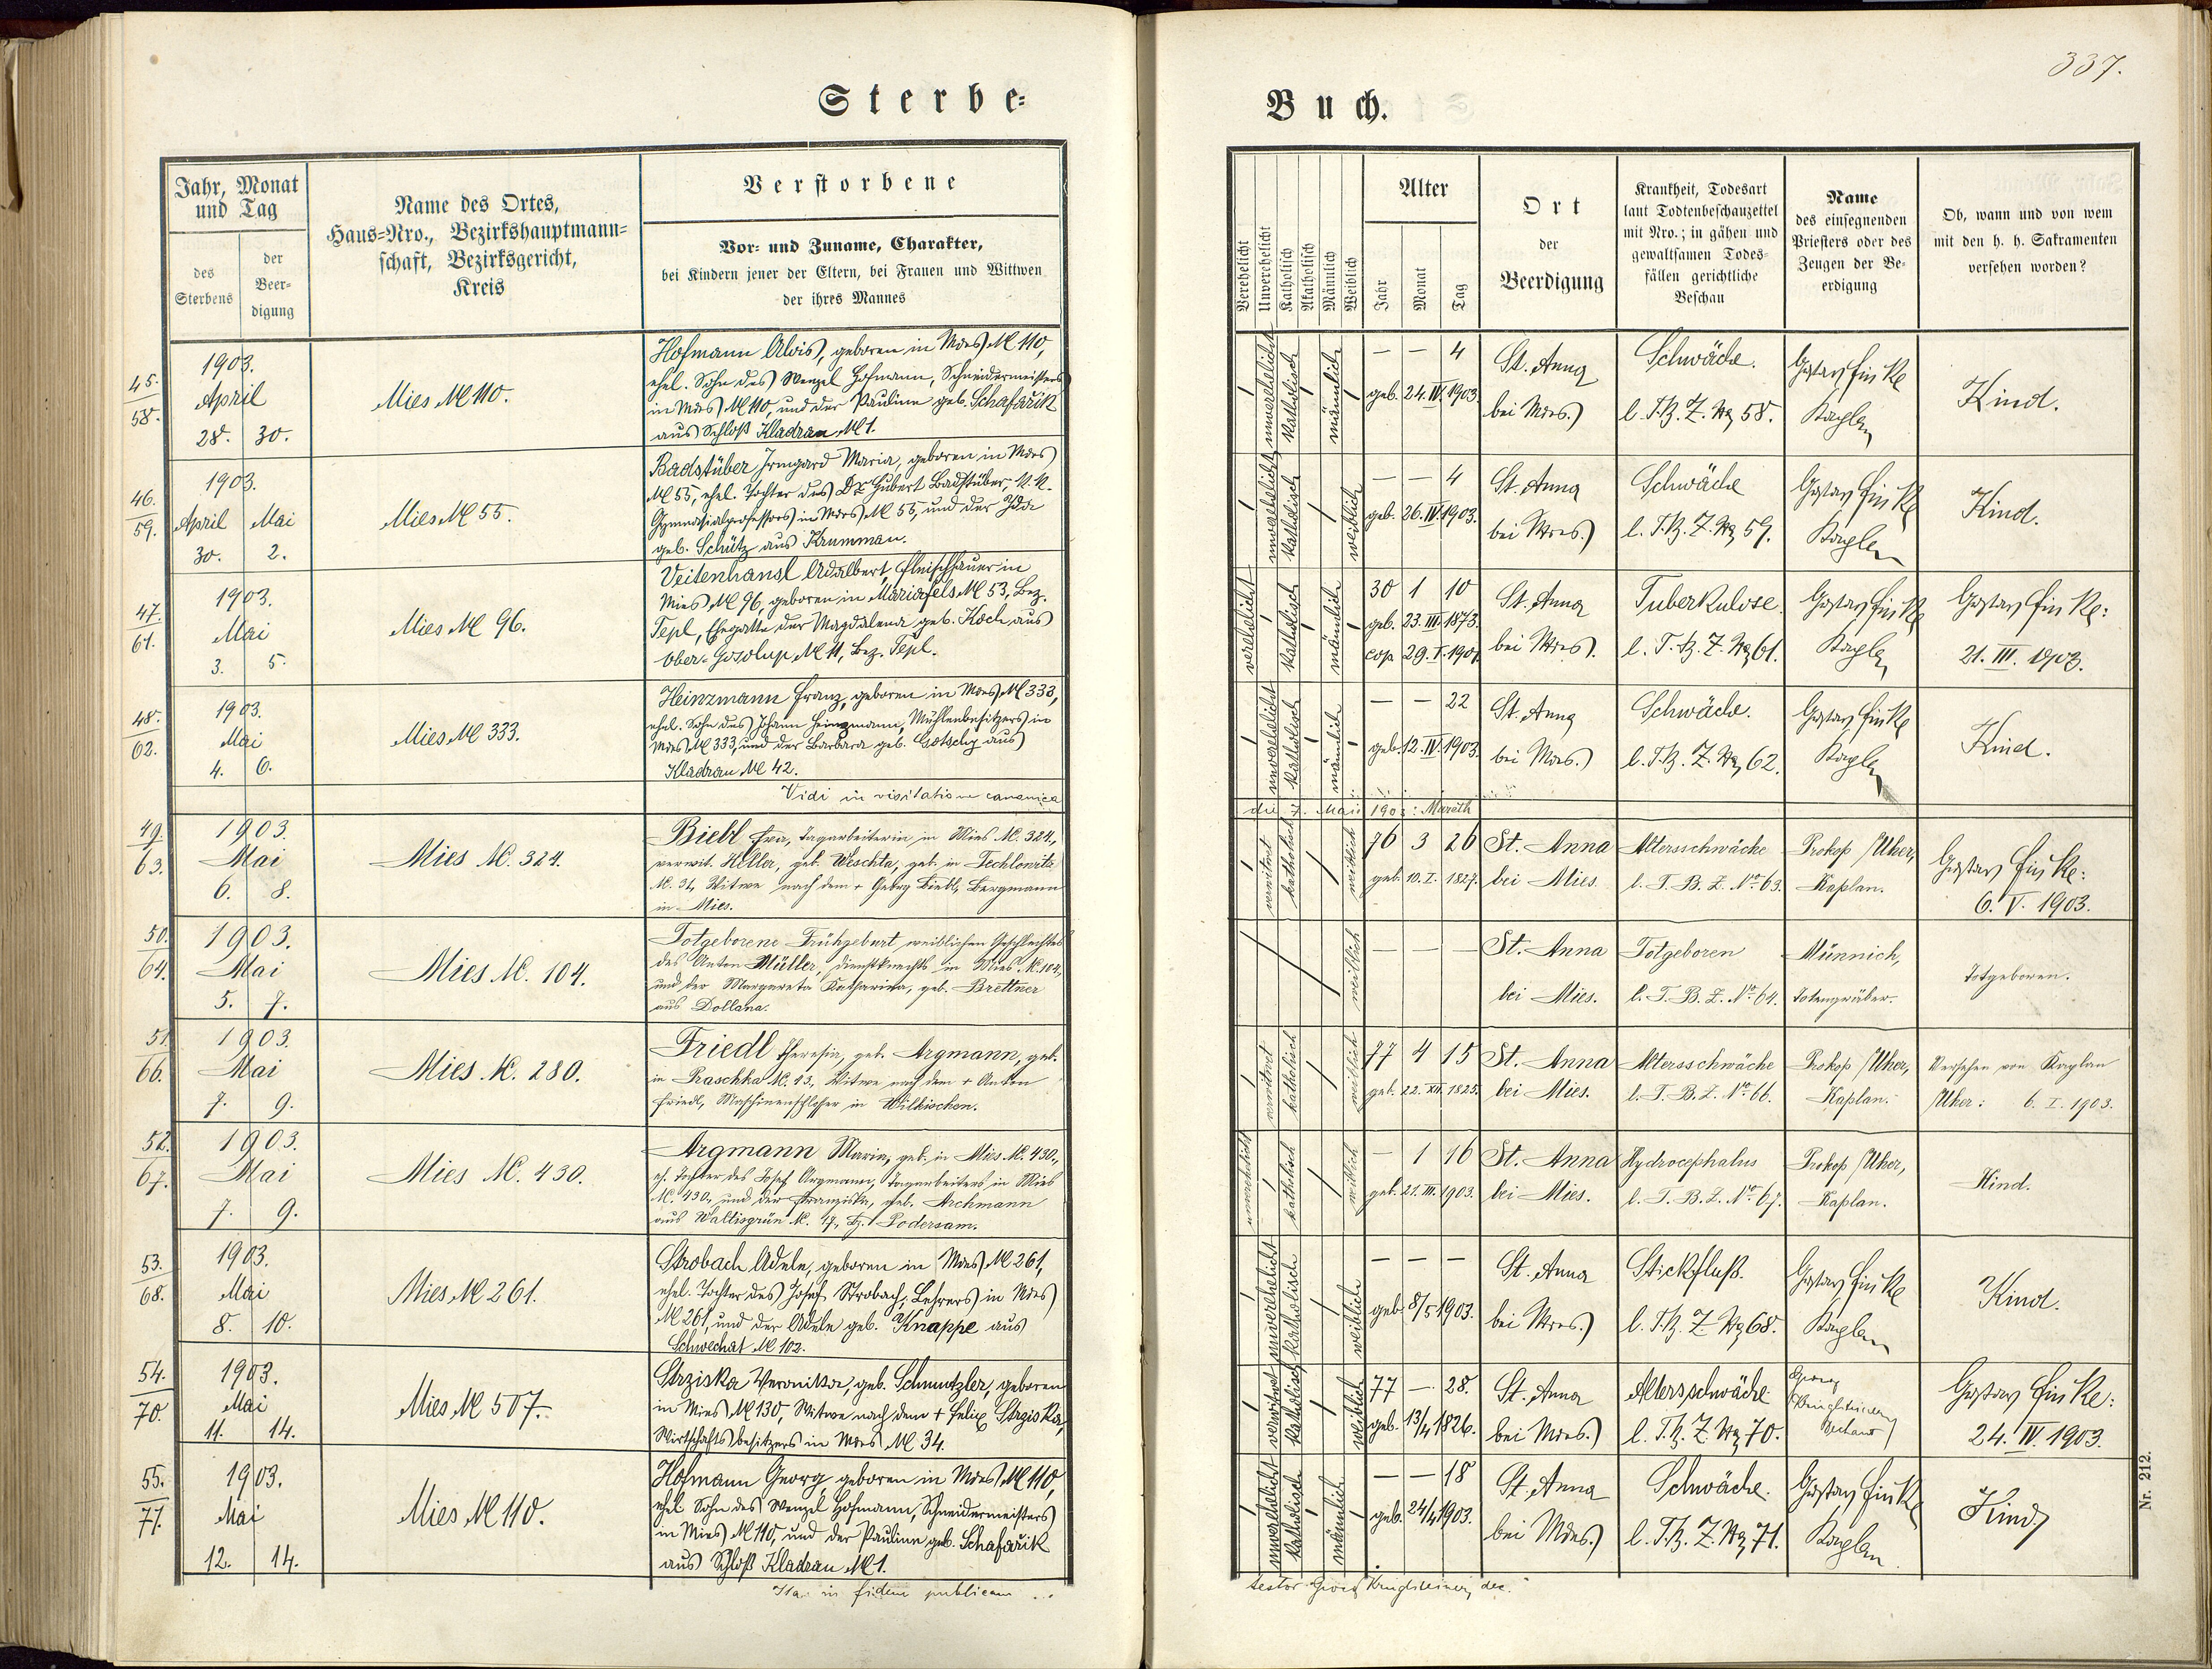 337.
Sterbe-
Buch.
Jahr, Monat
und Tag
des
Sterbens
der
Beer-
digung
Name des Ortes,
Haus-Nro., Bezirkshauptmann-
schaft, Bezirksgericht,
Kreis
Verstorbene
Vor- und Zuname, Charakter,
bei Kindern jener der Eltern, bei Frauen und Wittwen
der ihres Mannes
Verehelicht
Unverehelicht
Katholisch
Akatholisch
Männlich
Weiblich
Alter
Jahr
Monat
Tag
Ort
der
Beerdigung
Krankheit, Todesart
laut Todtenbeschauzettel
mit Nro.; in gähen und
gewaltsamen Todes-
fällen gerichtliche
Beschau
Name
des einsegnenden
Priesters oder des
Zeugen der Be-
erdigung
Ob, wann und von wem
mit den h. h. Sakramenten
versehen worden?
45.
58.
1903.
April
28. 30.
Mies № 110.
Hofmann Alois, geboren in Mies № 110,
ehel. Sohn des Wenzel Hofmann, Schneidermeisters
in Mies № 110, und der Pauline geb. Schafařik
aus Schloß Kladrau № 1.
unverehelicht
katholisch
männlich
— — 4
geb. 24. IV. 1903.
St. Anna
bei Mies.
Schwäche.
l. T. B. Z. No 58.
Gustav Finke
Kaplan
Kind.
46.
59.
1903.
April Mai
30. 2.
Mies № 55.
Badstüber Irmgard Maria, geboren in Mies
№ 55, ehel. Tochter des Dr. Hubert Badstüber, k. k.
Gymnasialprofessors in Mies № 55, und der Ida
geb. Schütz aus Krummau.
unverehelicht
katholisch
weiblich
— — 4
geb. 26. IV. 1903.
St. Anna
bei Mies.
Schwäche
l. T. B. Z. No 59.
Gustav Finke
Kaplan
Kind.
47.
61.
1903.
Mai
3. 5.
Mies № 96.
Veitenhansl Adalbert, Fleischhauer in
Mies № 96, geboren in Mariafels № 53, Bez.
Tepl, Ehegatte der Magdalena geb. Koch aus
Ober-Gosolup № 11, Bez. Tepl.
verehelicht
katholisch
männlich
30 1 10
geb. 23. III. 1873.
cop. 29. I. 1901.
St. Anna
bei Mies.
Tuberkulose.
l. T. B. Z. No 61.
Gustav Finke
Kaplan
Gustav Finke:
21. III. 1903.
48.
62.
1903.
Mai
4. 6.
Mies № 333.
Heinzmann Franz, geboren in Mies № 333,
ehel. Sohn des Johann Heinzmann, Mühlenbesitzers in
Mies № 333, und der Barbara geb. Götschy aus
Kladrau № 42.
unverehelicht
katholisch
männlich
— — 22
geb. 12. IV. 1903.
St. Anna
bei Mies.
Schwäche.
l. T. B. Z. No 62.
Gustav Finke
Kaplan
Kind.
Vidi in visitatione canonica
die 7. Maii 1903:
49.
63.
1903.
Mai
6. 8.
Mies №. 324.
Biebl Eva, Tagarbeiterin in Mies №. 324,
verwit. Heller, geb. Weschta, geb. in Techlowitz
№. 31, Witwe nach dem + Georg Biebl, Bergmann
in Mies.
verwitwet
katholisch
weiblich
76 3 26
geb. 10. I. 1827.
St. Anna
bei Mies.
Altersschwäche
l. T. B. Z. No 63.
Prokop Uher,
Kaplan.
Gustav Finke:
6. V. 1903.
50.
64.
1903.
Mai
5. 7.
Mies №. 104.
Totgeborene Frühgeburt weiblichen Geschlechtes
des Anton Müller, Dienstknechts in Mies №. 104,
und der Margareta Katharina, geb. Brettner
aus Dollana.
weiblich
— — —
St. Anna
bei Mies.
Totgeboren
l. T. B. Z. No 64.
Münnich,
Totengräber.
Totgeboren.
51.
66.
1903.
Mai
7. 9.
Mies №. 280.
Friedl Theresia, geb. Argmann, geb.
in Praschka №. 13, Witwe nach dem + Anton
Friedl, Maschinenschlosser in Wilkischen.
verwitwet
katholisch
weiblich
77 4 15
geb. 22. XII. 1825.
St. Anna
bei Mies.
Altersschwäche
l. T. B. Z. No 66.
Prokop Uher,
Kaplan.
Versehen von Kaplan
Uher: 6. I. 1903.
52.
67.
1903.
Mai
7. 9.
Mies №. 430.
Argmann Maria, geb. in Mies №. 430,
eh. Tochter des Josef Argmann, Tagarbeiters in Mies
№. 430, und der Franziska, geb. Archmann
aus Wallisgrün №. 17, Bz. Podersam.
unverehelicht
katholisch
weiblich
— 1 16
geb. 21. III. 1903.
St. Anna
bei Mies.
Hydrocephalus
l. T. B. Z. No 67.
Prokop Uher,
Kaplan.
Kind.
53.
68.
1903.
Mai
8. 10.
Mies № 261.
Strobach Adele, geboren in Mies № 261,
ehel. Tochter des Josef Strobach, Lehrers in Mies
№ 261, und der Adele geb. Knappe aus
Schwechat № 102.
unverehelicht
katholisch
weiblich
— — —
geb. 8/5 1903.
St. Anna
bei Mies.
Stickfluß.
l. T. B. Z. No 68.
Gustav Finke
Kaplan
Kind.
54.
70.
1903.
Mai
11. 14.
Mies № 507.
Strziska Veronika, geb. Schmutzler, geboren
in Mies № 130, Witwe nach dem + Felix Strziska,
Wirtschaftsbesitzers in Mies № 34.
verwitwet
katholisch
weiblich
77 — 28.
geb. 13/4 1826.
St. Anna
bei Mies.
Altersschwäche
l. T. B. Z. No 70.
Georg
Dechant
Gustav Finke:
24. IV. 1903.
55.
71.
1903.
Mai
12. 14.
Mies № 110.
Hofmann Georg, geboren in Mies № 110,
ehel. Sohn des Wenzel Hofmann, Schneidermeisters
in Mies № 110, und der Pauline geb. Schafařik
aus Schloß Kladrau № 1.
unverehelicht
katholisch
männlich
— — 18
geb. 24/4 1903.
St. Anna
bei Mies.
Schwäche.
l. T. B. Z. No 71.
Gustav Finke
Kaplan
Kind.
Ita in fidem publicam
testor Georg dec.
Nr. 212.